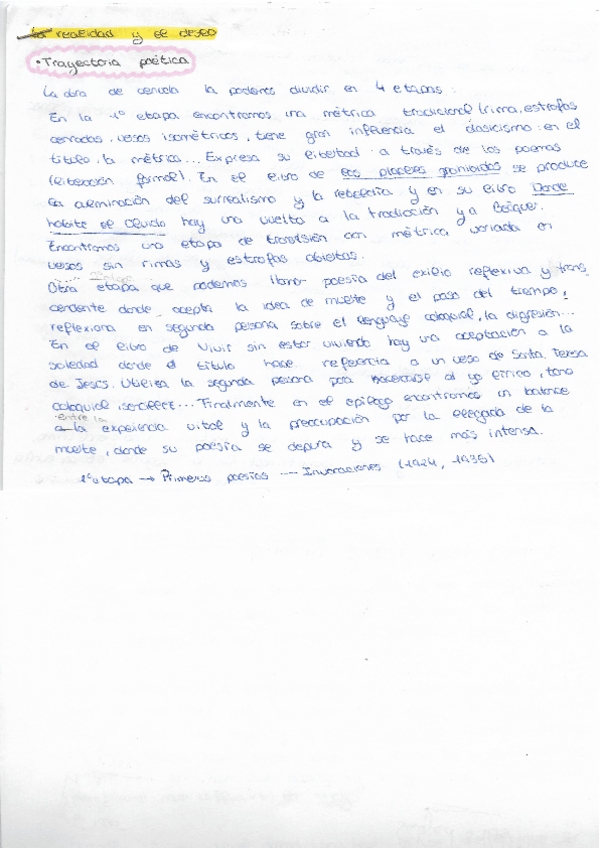 La realidad y el deseo
• Trayectoria poética
La obra de cernuda la podemos dividir en 4 etapas:
En la 1º etapa encontramos una métrica tradicional (rima, estrofas
cerradas, versos isométricos, tiene gran influencia el clasicismo: en el
título, la métrica... Expresa su libertad a través de los poemas
(liberación formal). En el libro de los placeres prohibidos se produce
la culminación del surrealismo y la rebeldía y en su libro Donde
habite el olvido hay una vuelta a la tradición y a Bécquer.
Encontramos una etapa de transición con métrica variada en
versos sin rimas y estrofas abiertas.
Otra etapa que podemos llamar poesía del exilio reflexiva y trans
cendente donde acepta la idea de muerte y el paso del tiempo,
reflexiona en segunda persona sobre el lenguaje coloquial, la digresión...
En el libro de Vivir sin estar viviendo hay una aceptación a la
soledad donde el título hace referencia a un verso de Santa Teresa
de Jesús. Utiliza la segunda persona para al yo lírico, tono
coloquial, sencillez... Finalmente en el epílogo encontramos un balance
entre la
a la experiencia vital y la preocupación por la llegada de la
muerte, donde su poesía se depura y se hace más intensa.
1º etapa → Primeras poesías --- Invocaciones (1924, 1935)